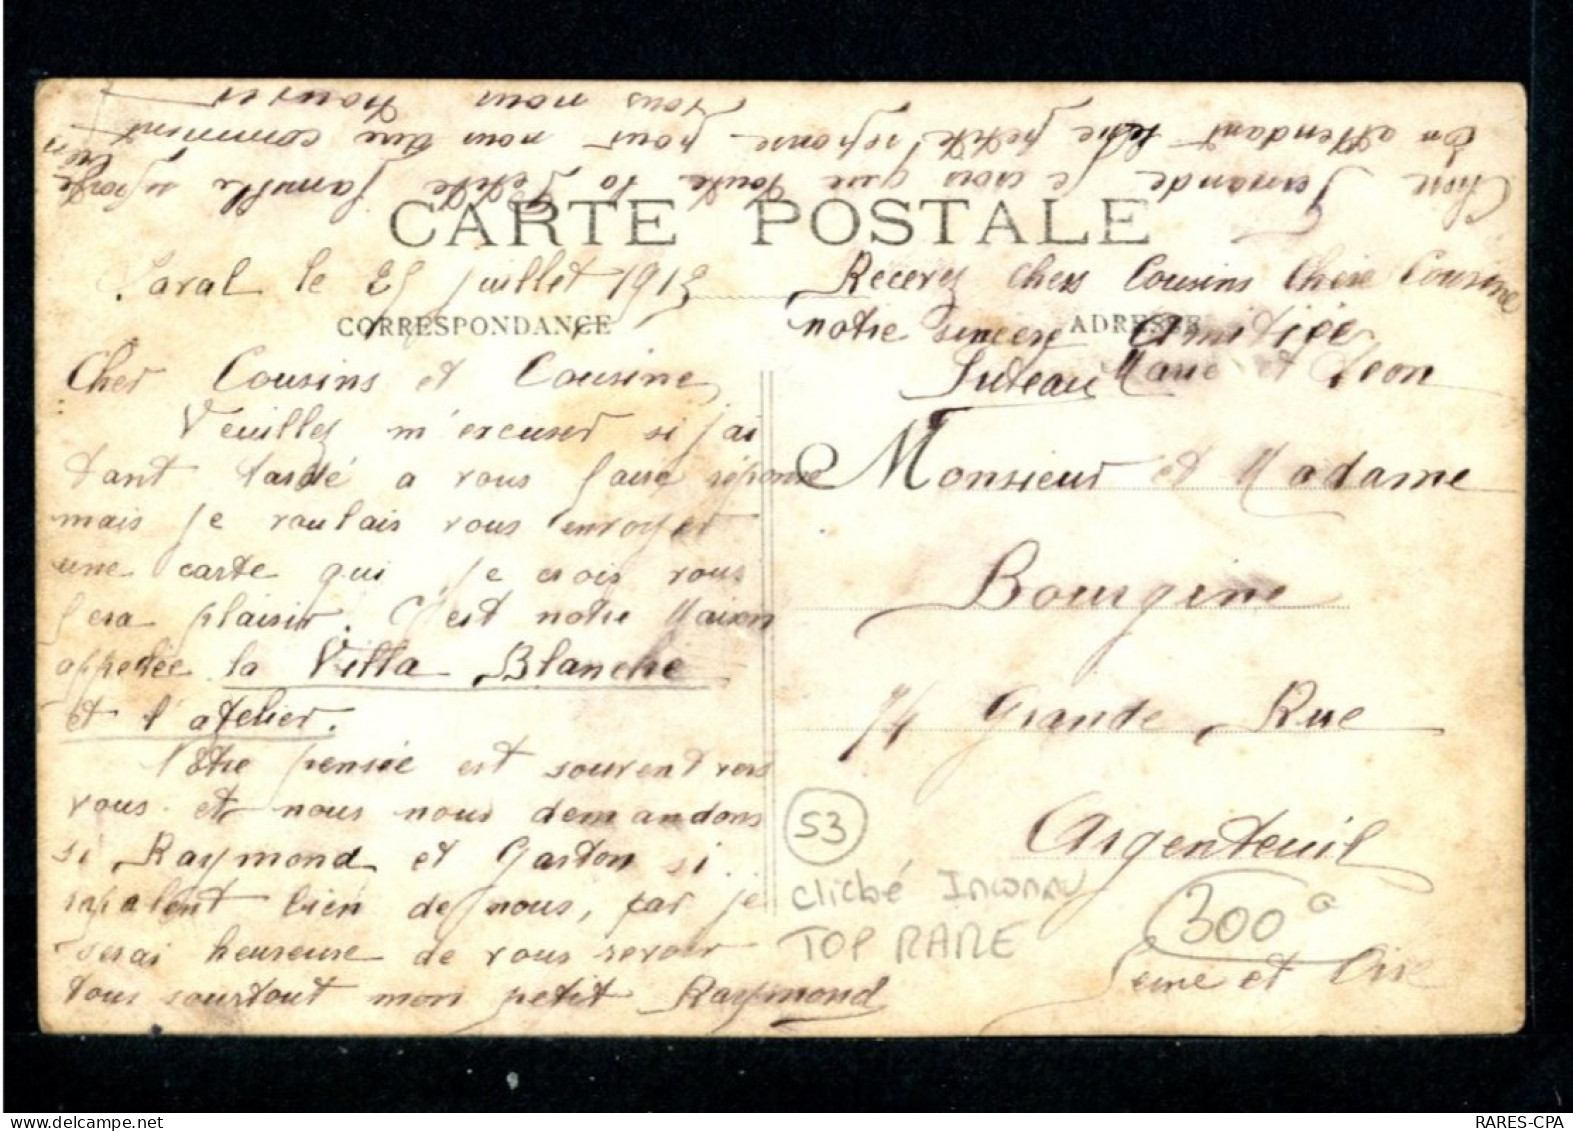 Chère Fernande je crois que toute la petite famille se porte bien
En attendant votre petite réponse pour nous dire comment
vous nous trouvez
CARTE POSTALE
Laval le 25 juillet 1913
CORRESPONDANCE
Cher Cousins et Cousine
Veuillez m'excuser si j'ai
tant tardé a vous faire réponse
mais je voulais vous envoyer
une carte qui je crois vous
fera plaisir. C'est notre Maison
appelée la Villa Blanche
et l'atelier.
Nôtre pensée est souvent vers
vous et nous nous demandons
si Raymond et Gaston si
rapalent bien de nous, car je
serai heureuse de vous revoir
tous surtout mon petit Raymond
Recevez chers Cousins Chère Cousine
ADRESSE
notre sincère Amitiée
Juteau Marie et Léon
Monsieur et Madame
Bourgine
74 Grande Rue
Argenteuil
Seine et Oise
53
cliché Inconnu
TOP RARE
300
www.delcampe.net
RARES-CPA